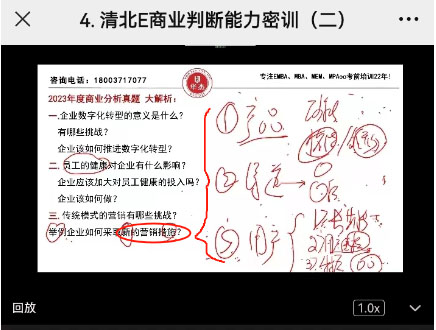 4. 清北E商业判断能力密训（二）
咨询电话：18003717077
华杰
专注EMBA、MBA、MEM、MPAcc考前培训22年！
2023年度商业分析真题 大解析：
一.企业数字化转型的意义是什么？
有哪些挑战？
企业该如何推进数字化转型？
二.员工的健康对企业有什么影响？
企业应该加大对员工健康的投入吗？
企业该如何做？
三.传统模式的营销有哪些挑战？
举例企业如何采取新的营销措施？
① 产品
② 渠道
③ 用户
回放
1.0x